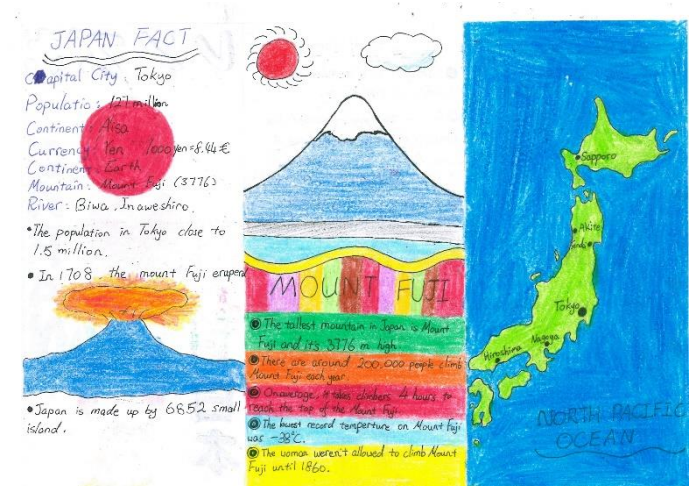 JAPAN FACT
Capital City : Tokyo
Populatio : 127 million
Continent : Aisa
Currency : Yen 1000 yen = 8.44 €
Continent : Earth
Mountain : Mount Fuji (3776)
River : Biwa, Inaweshiro.
• The population in Tokyo close to
1.5 million.
• In 1708 the mount Fuji eruperd
• Japan is made up by 6852 small
island.
MOUNT FUJI
The tallest mountain in Japan is Mount
Fuji and its 3776 m high.
There are around 200,000 people climb
Mount Fuji each year
On average, it takes climbers 4 hours to
reach the top of the Mount Fuji
The lowest record temperture on Mount Fuji
was -38°C.
The woman weren't allowed to climb Mount
Fuji until 1860.
Sapporo
Akita
Tokyo
Nagoya
Hiroshima
NORTH PACIFIC
OCEAN